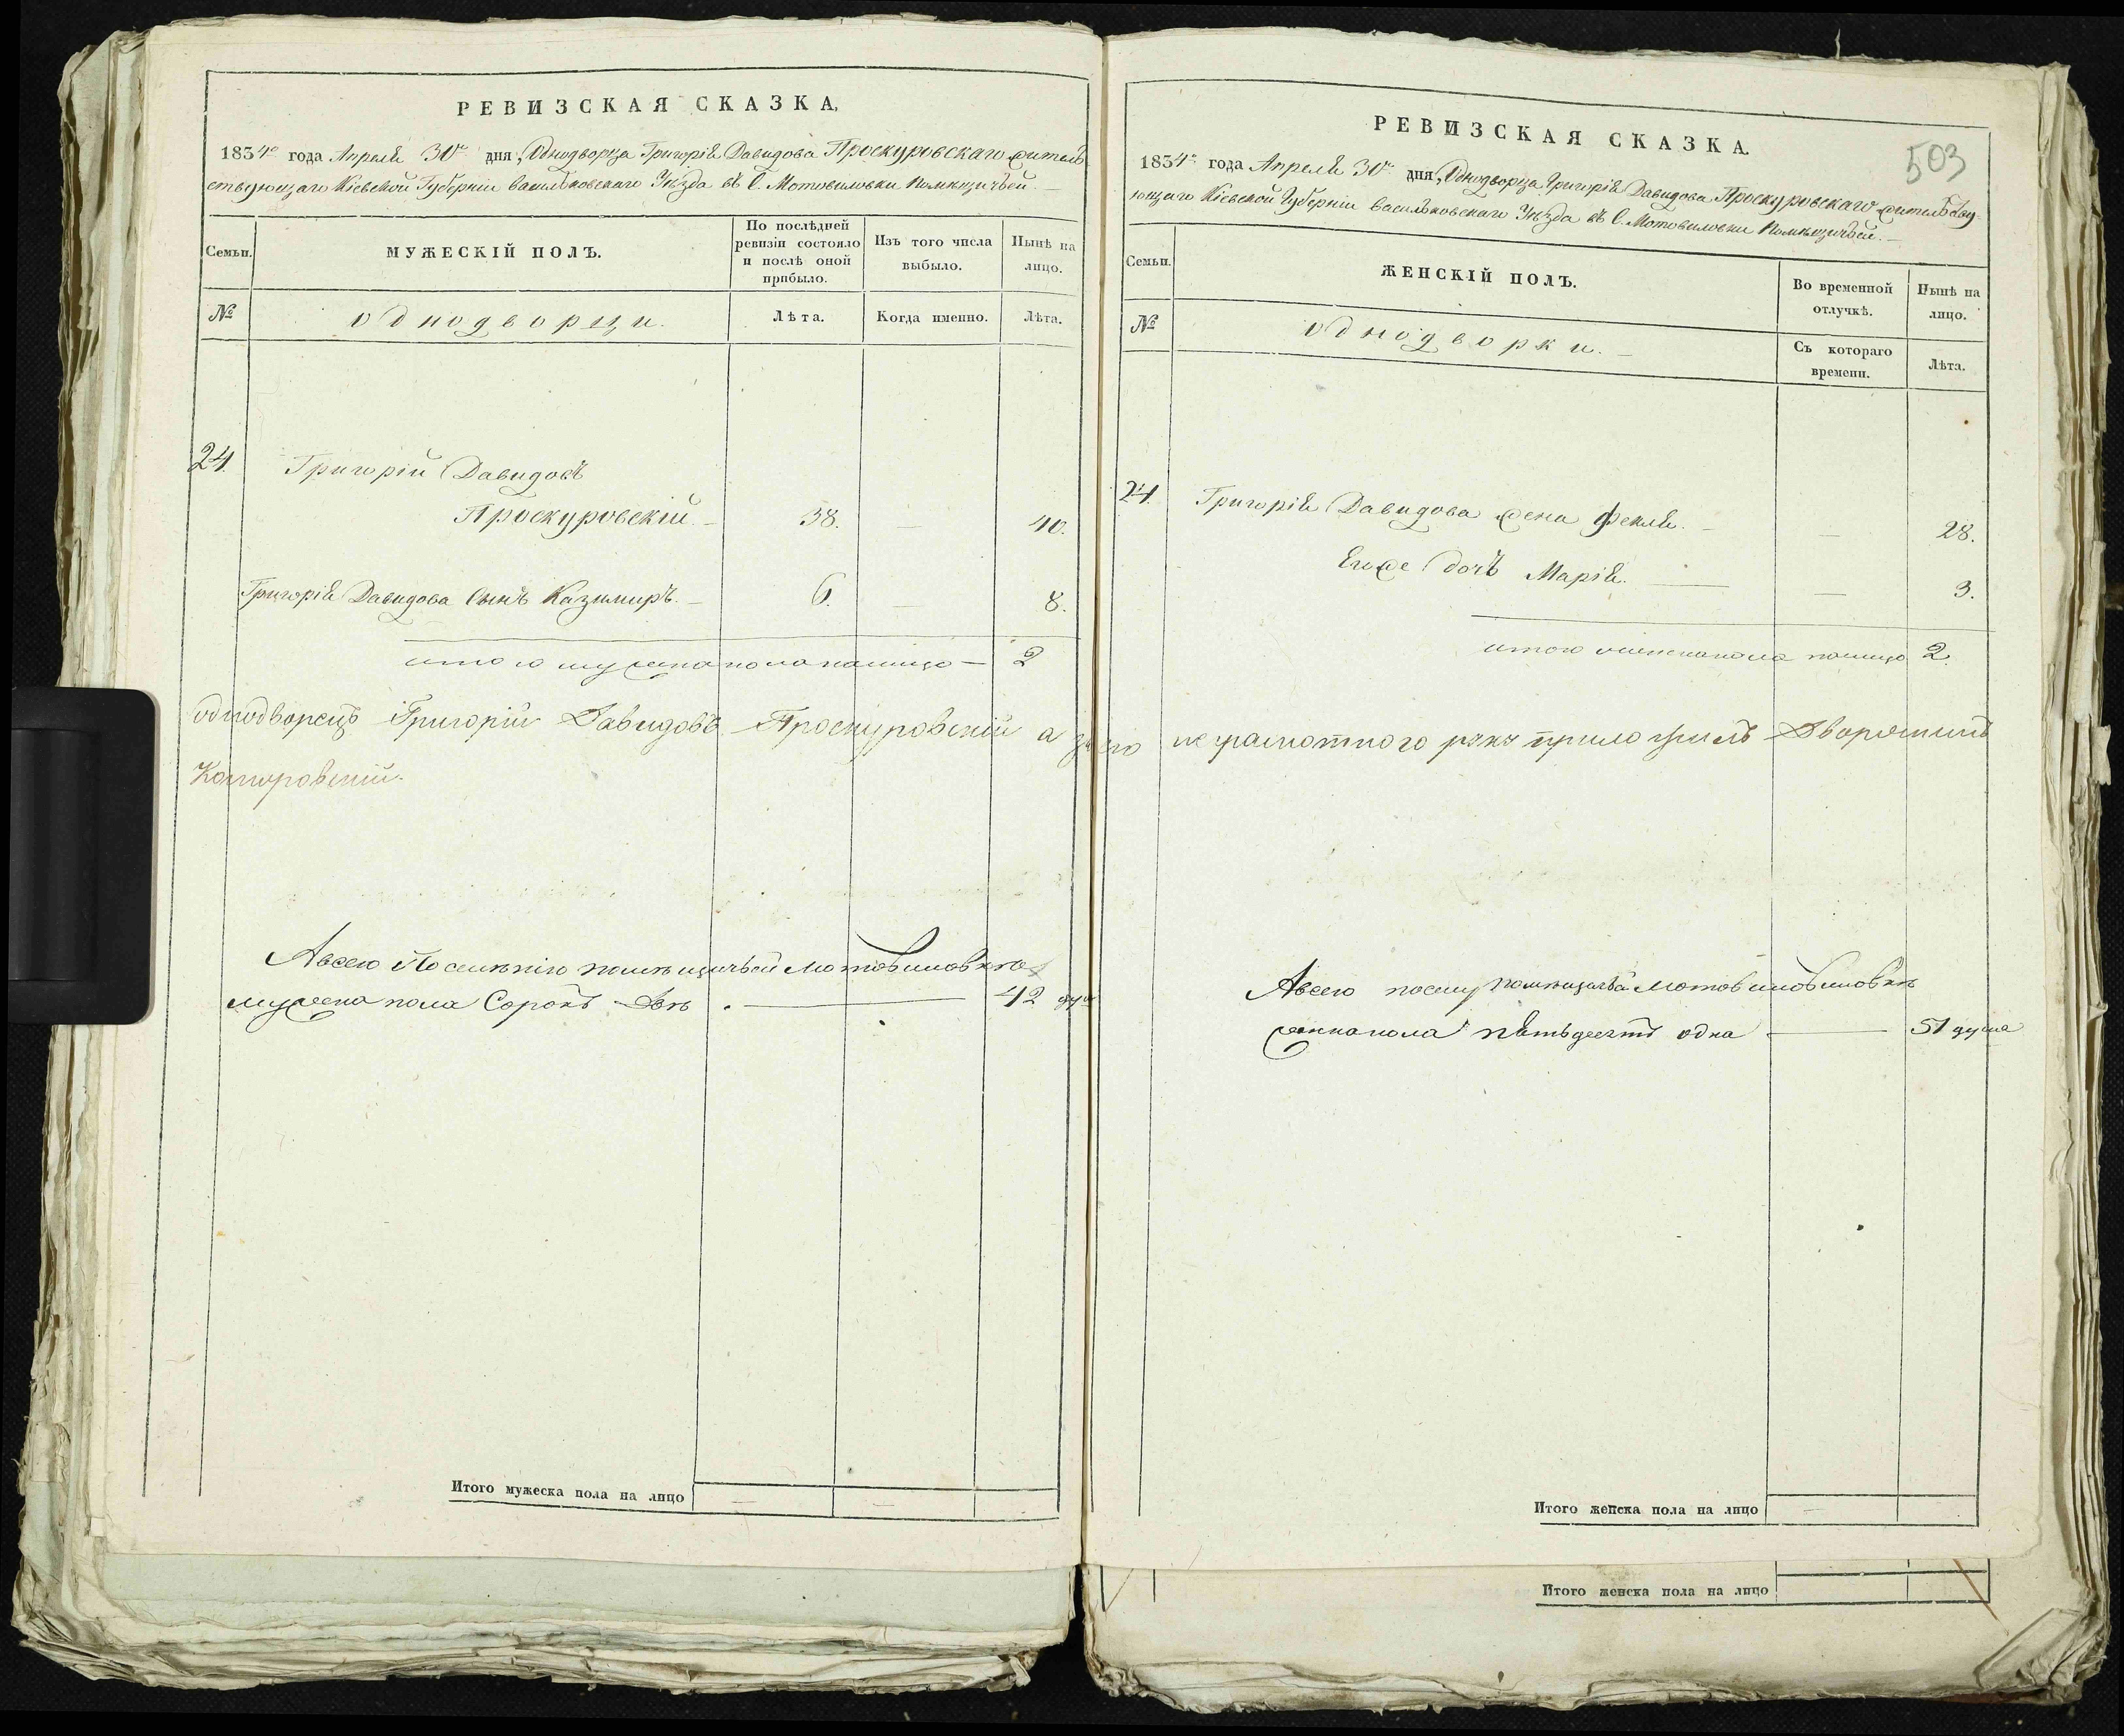 РЕВИЗСКАЯ СКАЗКА,
1834го года Апреля 30го дня, Однодворца Григорія Давидова Проскуровскаго житель-
ствующаго Кіевской Губерніи Васильковскаго Уѣзда въ С. Мотовиловки Помѣщичьей
Семьи.
МУЖЕСКІЙ ПОЛЪ.
По послѣдней ревизіи состояло и послѣ оной прибыло.
Изъ того числа выбыло.
Нынѣ на лицо.
№
однодворци.
Лѣта.
Когда именно.
Лѣта.
24.
Григорій Давидовъ
Проскуровскій. 38. 40.
Григорія Давидова Сынъ Казимиръ. 6. 8.
итого мужеска пола налицо 2
однодворецъ Григорій Давидовъ Проскуровскій а за его неграмотного руку приложилъ Дворянинъ
Авсего Поселѣнію помѣщичьей Мотовиловки
мужеска пола Сорокъ Двѣ 42 душ
Итого мужеска пола на лицо
503
РЕВИЗСКАЯ СКАЗКА.
1834го года Апреля 30го дня, Однодворца Григорія Давидова Проскуровскаго жительству-
ющаго Кіевской Губерніи Васильковскаго Уѣзда въ С. Мотовиловки Помѣщичьей.
Семьи.
ЖЕНСКІЙ ПОЛЪ.
Во временной отлучкѣ.
Нынѣ на лицо.
№
однодворки.
Съ котораго времени.
Лѣта.
24.
Григорія Давидова жена Фекля. — 28.
Егоже дочь Марія. — 3.
итого женска пола налицо 2.
Авсего посему помѣщичьей
женска пола пятьдесятъ одна 51 душа
Итого женска пола на лицо
Итого женска пола на лицо